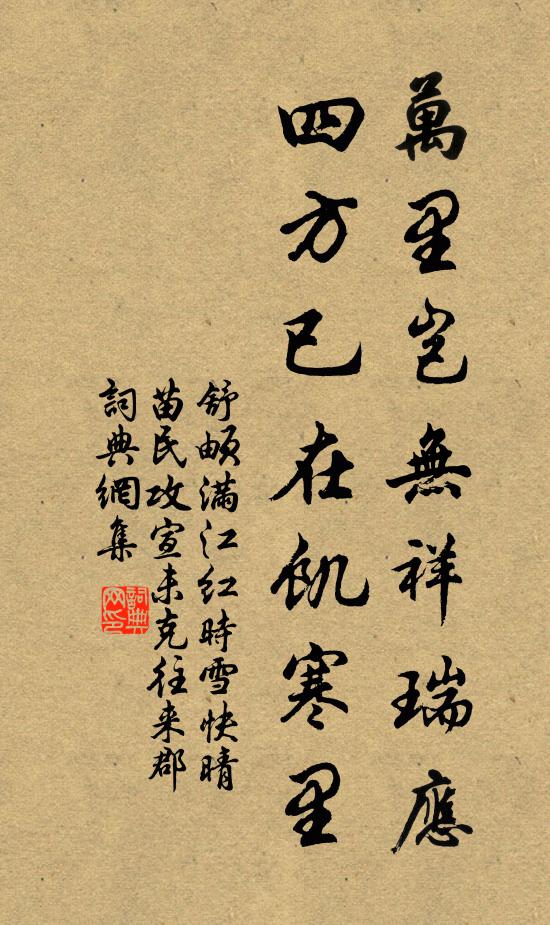 萬里豈無祥瑞應
四方已在飢寒里
舒頔滿江紅時雪快晴
苗民攻宣未克往来郡
詞典網集
詞典网印